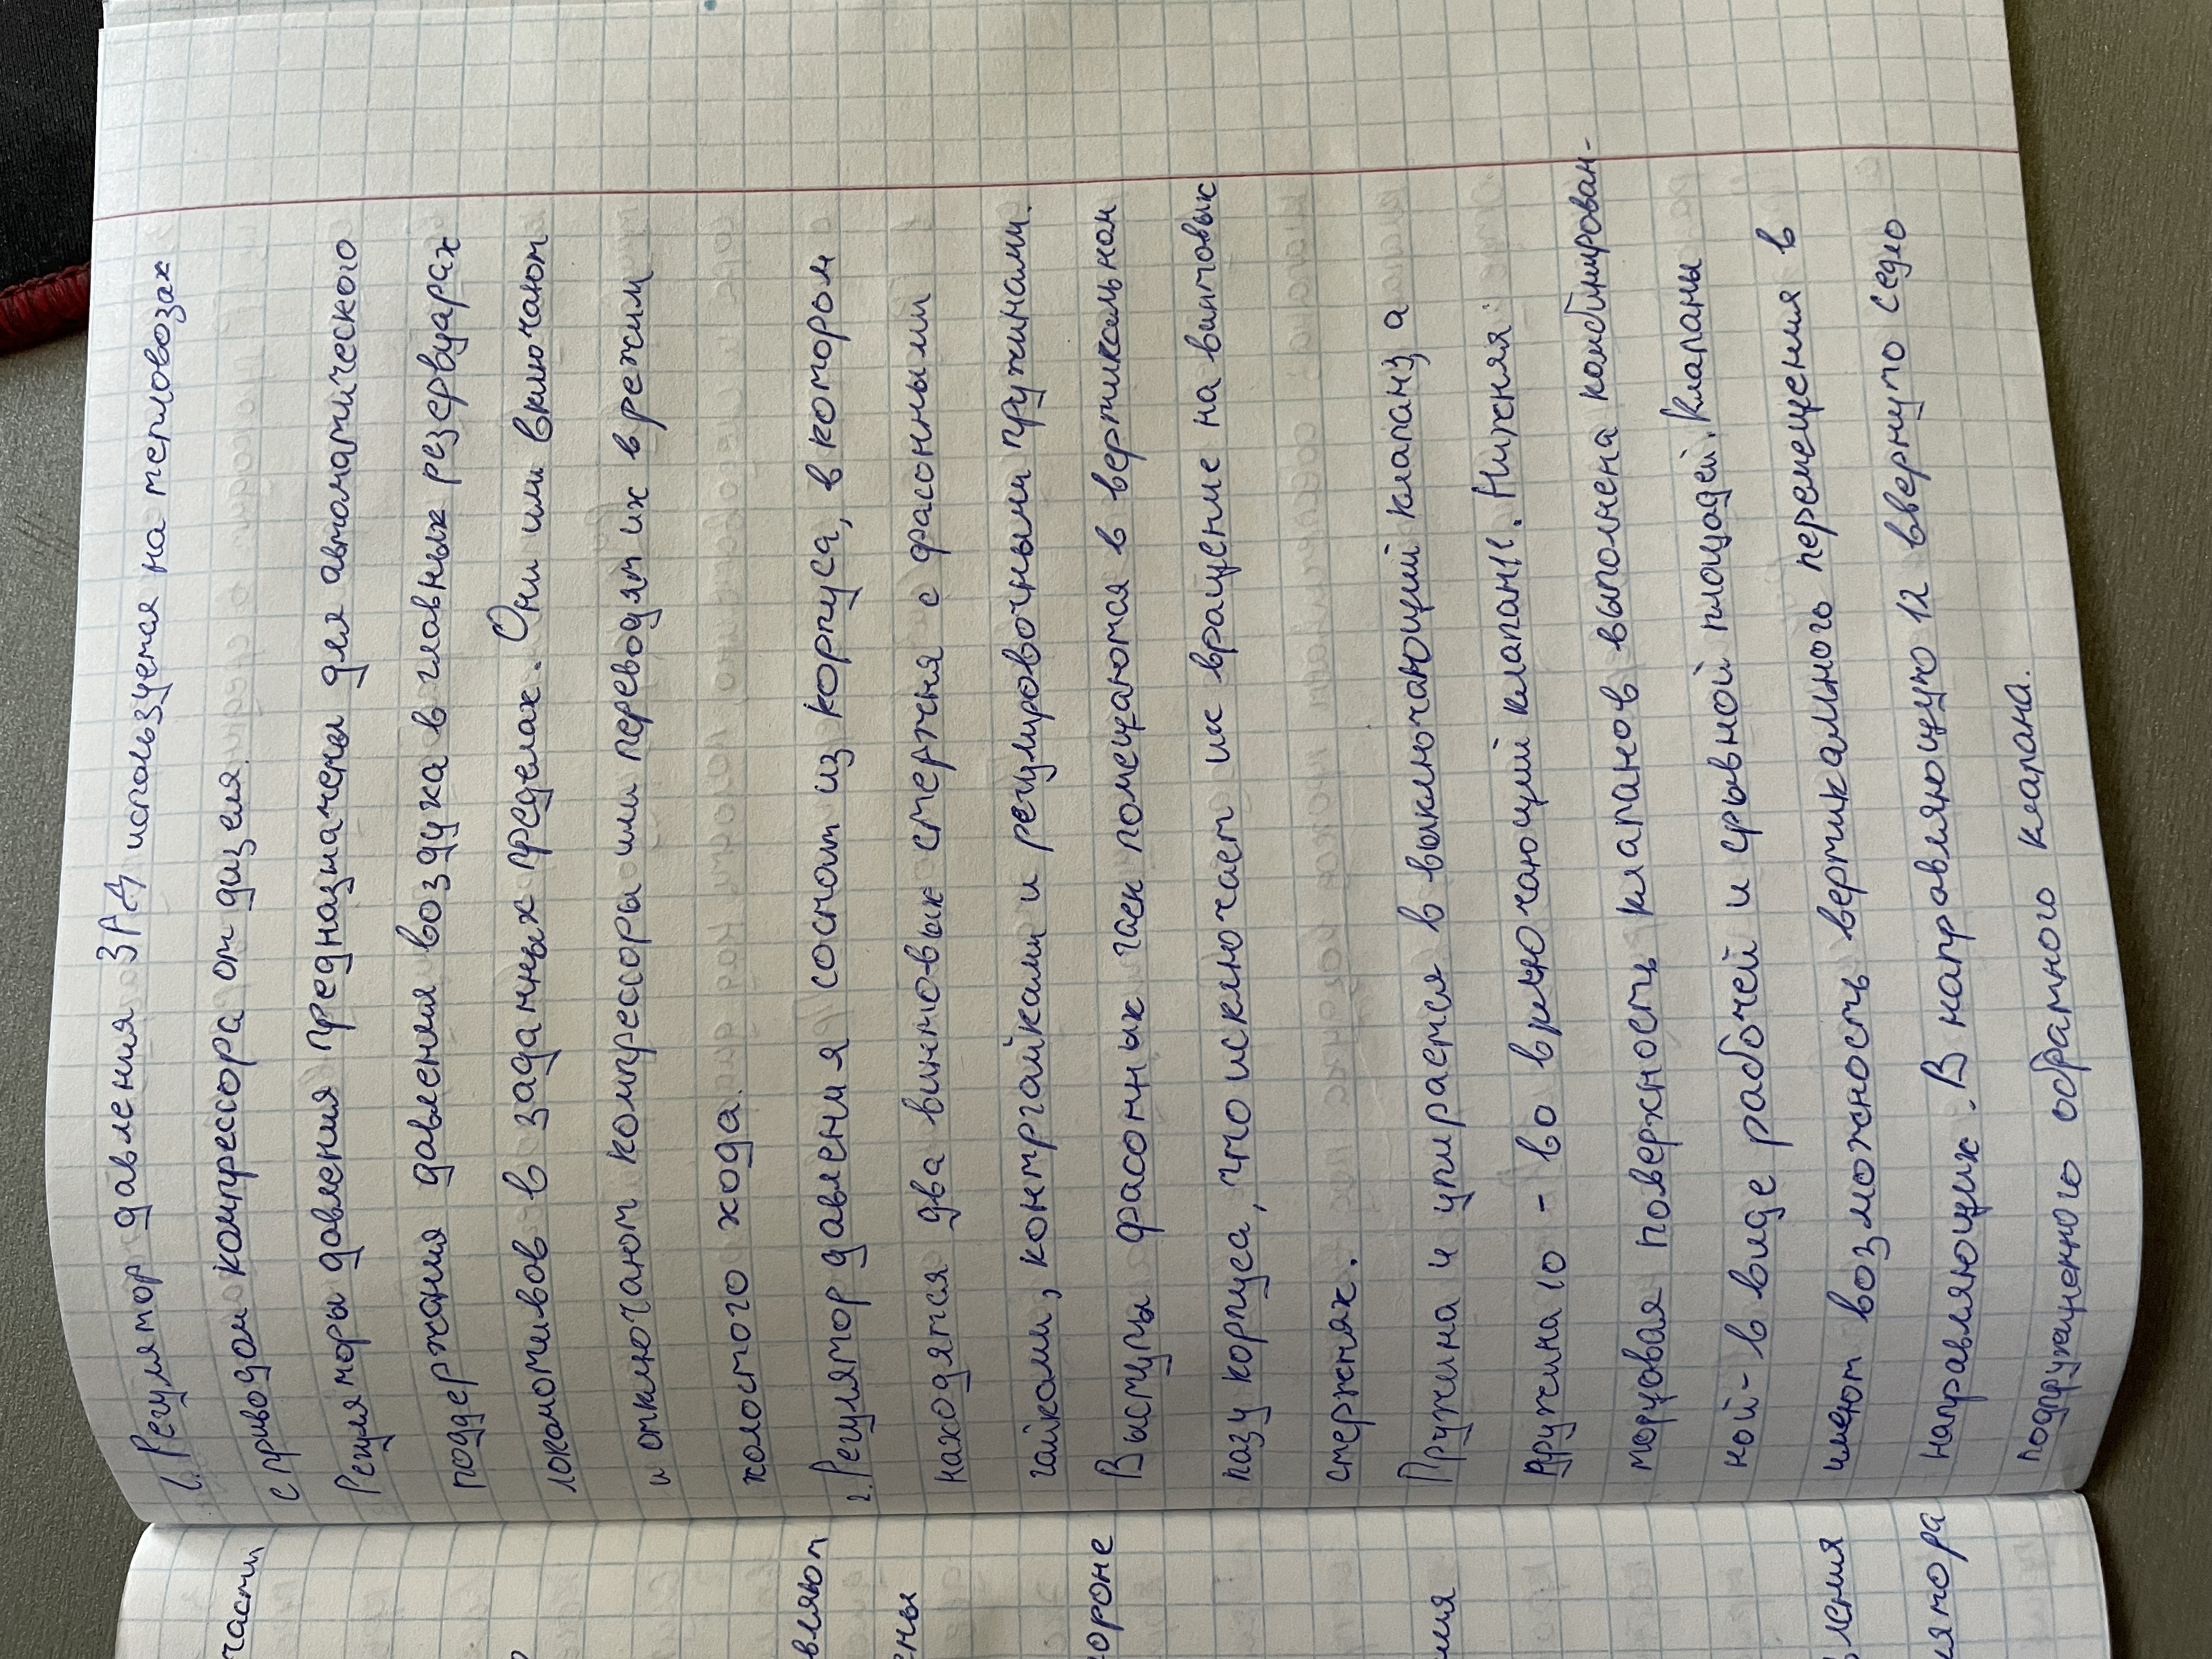 1. Регулятор давления ЗРД используется на тепловозах
с приводом компрессора от дизеля.
Регуляторы давления предназначены для автоматического
поддержания давления воздука в главных резервуарах
локомотивов в заданных пределах. Они или включают
и отключают компрессоры или переводят их в режим
холостого хода.
2. Регулятор давления состоит из корпуса, в котором
находятся два винтовых стержня с фасонными
гайками, контргайками и регулировочными пружинами.
Выступы фасонных гаек помещаются в вертикальном
пазу корпуса, что исключает их вращение на винтовых
стержнях.
Пружина 4 упирается в выключающий клапану а
пружина 10 - во включающий клапан 11. Нижняя
торцовая поверхность клапанов выполнена комбинирован-
ной - в виде рабочей и срывной площадей. Клапаны
имеют возможность вертикального перемещения в
направляющих. В направляющую 12 ввернуто седло
подпружиненного обратного клапана.
части
вляют
ены
ороне
ния
ления
лятора